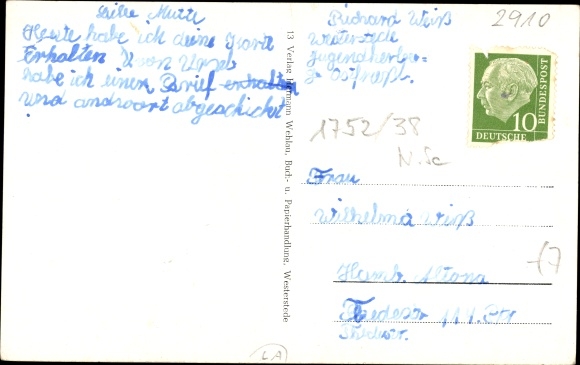 Liebe Mutti
Heute habe ich deine Karte
Erhalten von
habe ich einen Brief erhalten
und andwort abgeschickt
.
13 Verlag Hermann Wehlau, Buch- u. Papierhandlung, Westerstede
Richard Weiß
Westerstede
Jugendherber=
Ostfriesl.
2910
10
DEUTSCHE
BUNDESPOST
1752/38
N.Sa
Frau
Wilhelma Weiß
Hamb. Altona
111.
Thedestr.
f7
LA